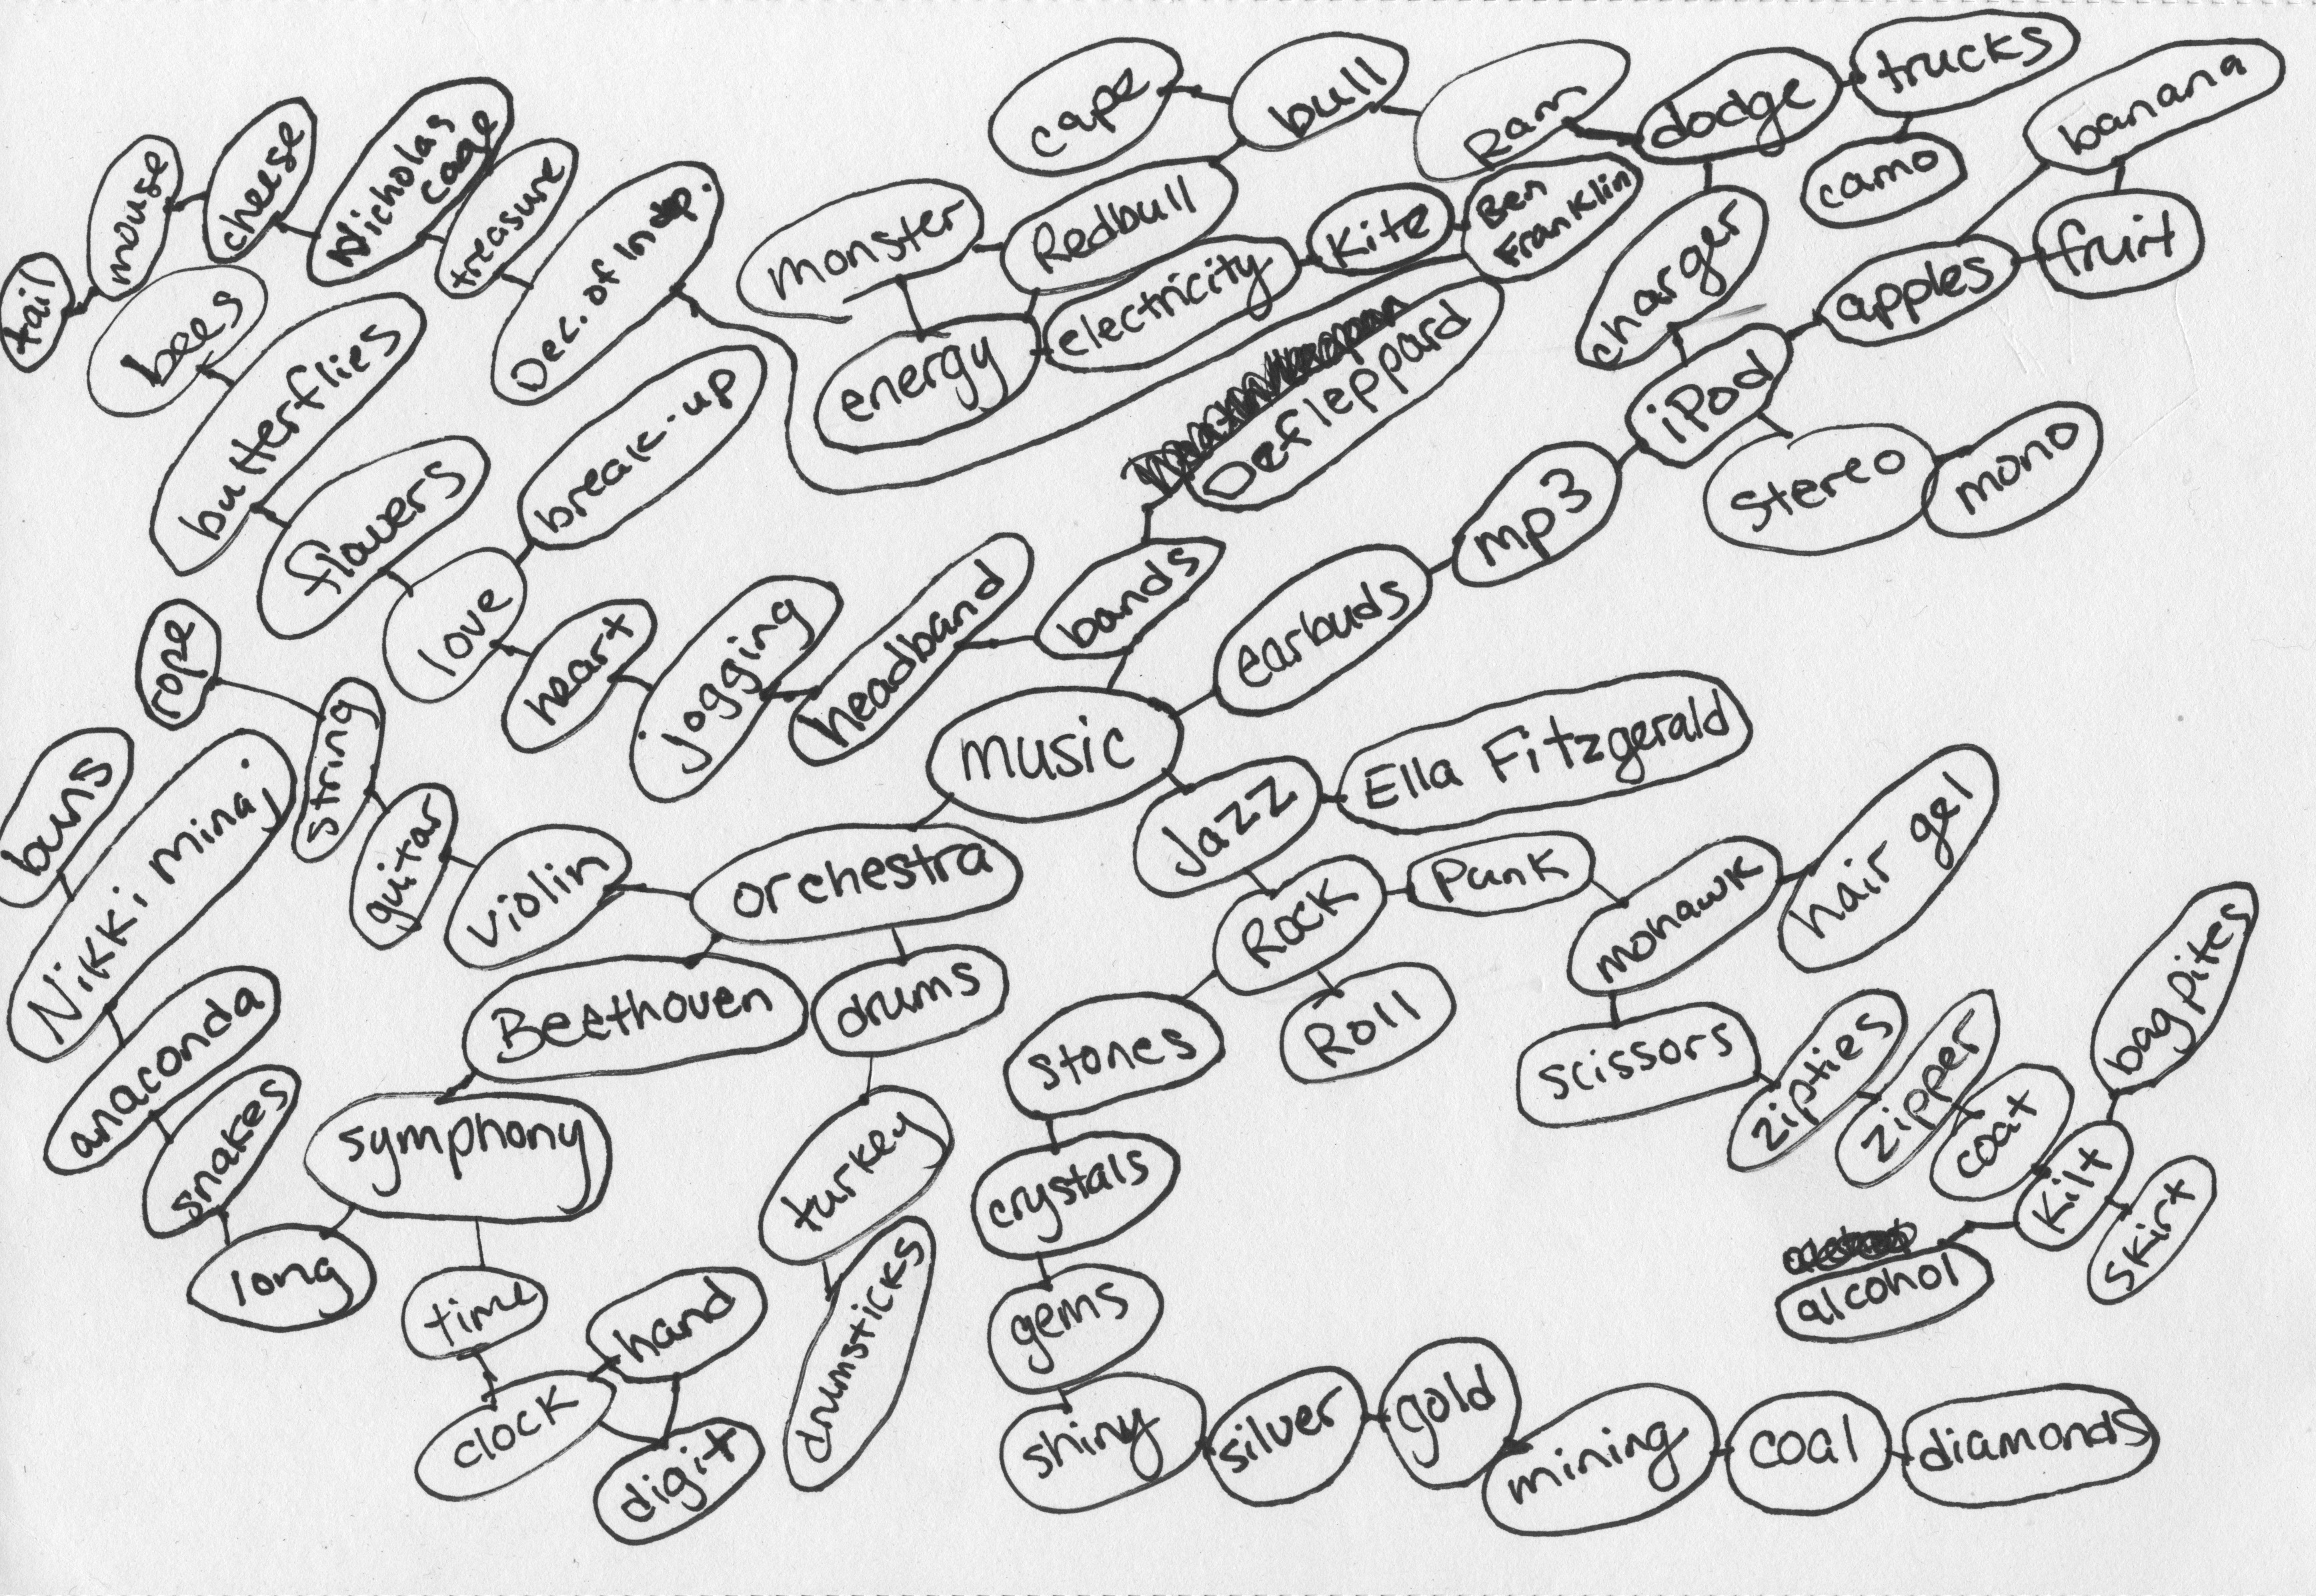 trucks
cape
bull
Ram
dodge
banana
camo
Nicholas
cage
cheese
mouse
treasure
Dec. of Indp.
monster
Redbull
Kite
Ben
Franklin
charger
apples
fruit
tail
bees
butterflies
electricity
energy
break-up
Defleppard
iPod
Stereo
mono
flowers
love
mp3
earbuds
bands
headband
jogging
heart
rope
string
music
Ella Fitzgerald
Jazz
buns
Nikki minaj
guitar
violin
orchestra
Rock
Punk
mohawk
hair gel
Beethoven
drums
Roll
stones
scissors
zipties
zipper
coat
bagpites
anaconda
snakes
symphony
turkey
crystals
kilt
skirt
alcohol
long
time
hand
drumsticks
gems
clock
digit
shiny
silver
gold
mining
coal
diamonds